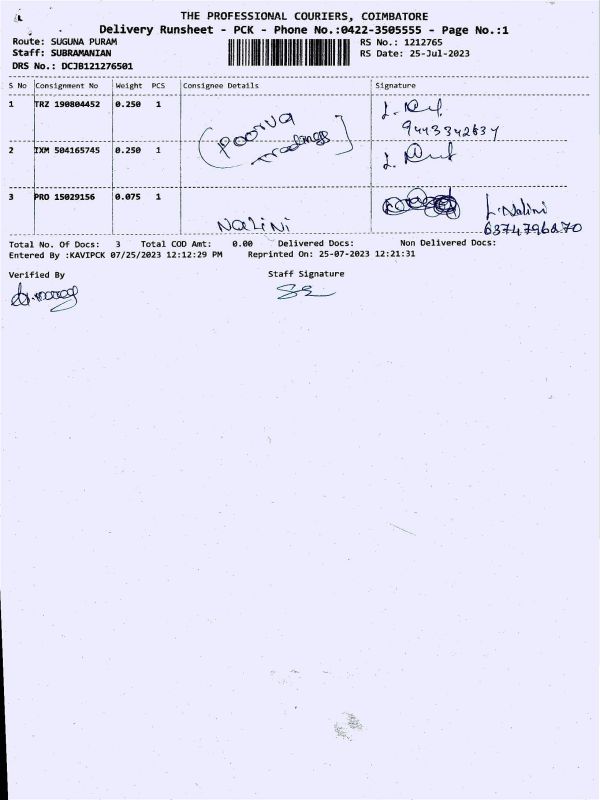 THE PROFESSIONAL COURIERS, COIMBATORE
Delivery Runsheet - PCK - Phone No.:0422-3505555 - Page No.:1
Route: SUGUNA PURAM RS No.: 1212765
Staff: SUBRAMANIAN RS Date: 25-Jul-2023
DRS No.: DCJB121276501
S No Consignment No Weight PCS Consignee Details Signature
1 TRZ 190804452 0.250 1
Poorva
Tradings
9443342637
2 TXM 504165745 0.250 1
3 PRO 15029156 0.075 1
Nalini L. Nalini
6374796270
Total No. Of Docs: 3 Total COD Amt: 0.00 Delivered Docs: Non Delivered Docs:
Entered By :KAVIPCK 07/25/2023 12:12:29 PM Reprinted On: 25-07-2023 12:21:31
Verified By Staff Signature